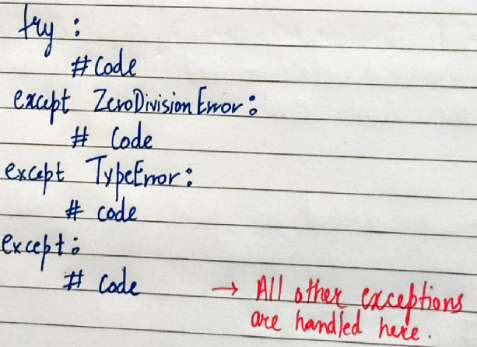 try :
#Code
except ZeroDivisionError:
# Code
except TypeError:
# code
except:
# Code → All other exceptions
are handled here.